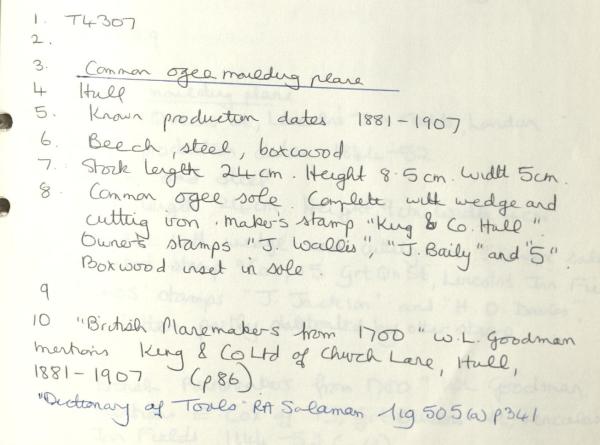 1. T4307
2.
3. Common ogee moulding plane
4 Hull
5. Known production dates 1881-1907
6. Beech, steel, boxwood
7. Stock length 24cm. Height 8.5cm. Width 5cm.
8. Common ogee sole. Complete with wedge and
cutting iron. maker's stamp "King & Co. Hull".
Owner's stamps "J. Wallis", "J. Baily" and "5".
Boxwood inset in sole
9
10 "British Planemakers from 1700" W.L. Goodman
mentions King & Co Ltd of Church Lane, Hull,
1881-1907 (p86).
"Dictionary of Tools" RA Salaman fig 505(a) p341